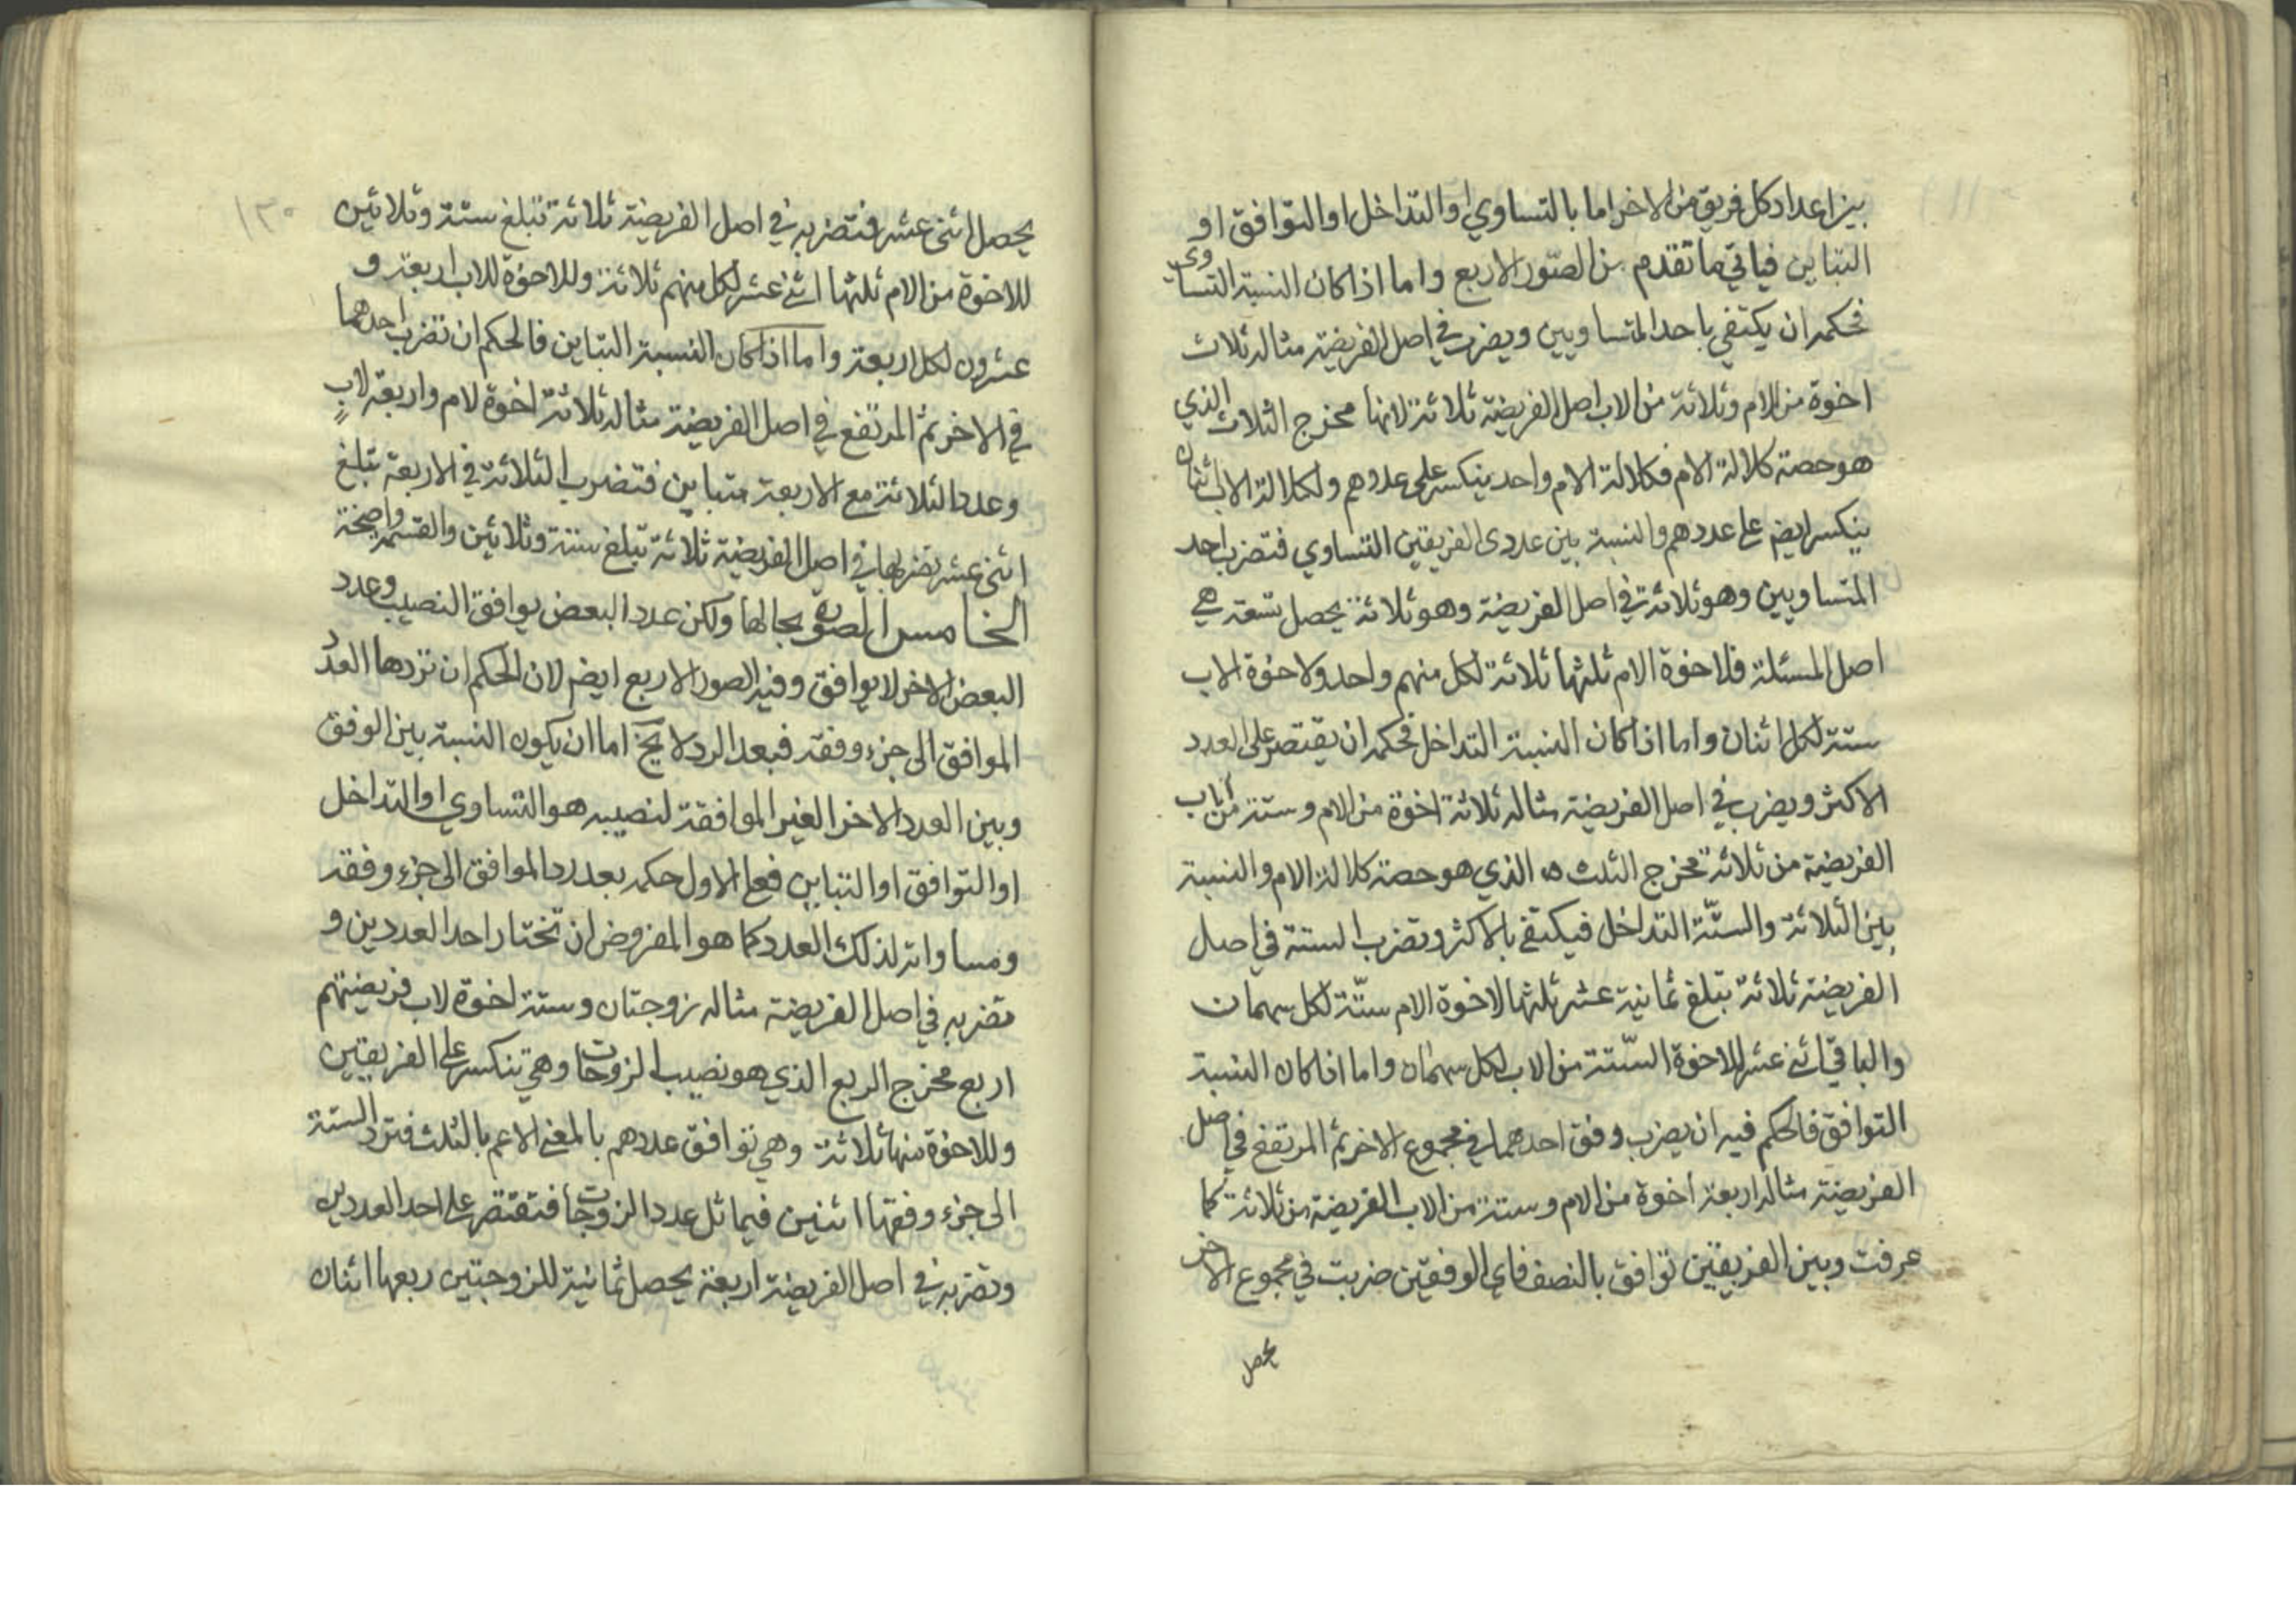 بين اعداد كل فريق من الاخر اما بالتساوي او التداخل او التوافق او
التباين فياتي ما تقدم من الصّور الاربع واما اذا كان النسبة التساوى
فحكمه ان يكتفي باحد المتساويين ويضرب في اصل الفريضة مثاله ثلاث
اخوة من الام وثلاثة من الاب اصل الفريضة ثلاثة لانها مخرج الثلاث الذي
هو حصة كلالة الام فكلالة الام واحد ينكسر على عددهم ولكلالة الاب اثنان
ينكسر ايضم على عددهم والنسبة بين عددى الفريقين التساوي فتضرب احد
المتساويين وهو ثلاثة في اصل الفريضة وهو ثلاثة يحصل تسعة هي
اصل المسئلة فلاخوة الام ثلثها ثلاثة لكل منهم واحد ولاخوة الاب
ستة لكل اثنان واما اذا كان النسبة التداخل فحكمه ان يقتصر على العدد
الاكثر ويضرب في اصل الفريضة مثاله ثلاثة اخوة من الام وستة من اب
الفريضة من ثلاثة مخرج الثلث الذي هو حصة كلالة الام والنسبة
بين الثلاثة والستّة التداخل فيكتفى بالاكثر وتضرب الستة في اصل
الفريضة ثلاثة تبلغ ثمانية عشر ثلثها لاخوة الام ستّة لكل سهمان
والباقي اثنى عشر للاخوة الستّة من الاب لكل سهمان واما اذا كان النسبة
التوافق فالحكم فيه ان يضرب وفق احدهما في مجموع الاخر ثم المرتفع في اصل
الفريضة مثاله اربعة اخوة من الام وستة من الاب الفريضة من ثلاثة كما
عرفت وبين الفريقين توافق بالنصف فاي الوفقين ضربت في مجموع الاخر
يحصل
١٣٠
يحصل اثنى عشر فتضربه في اصل الفريضة ثلاثة تبلغ ستة وثلاثين
للاخوة من الام ثلثها اثنى عشر لكل منهم ثلاثة وللاخوة للاب اربعة و
عشرون لكل اربعة واما اذا كان النسبة التباين فالحكم ان تضرب احدهما
في الاخر ثم المرتفع في اصل الفريضة مثاله ثلاثة اخوة لام واربعة لاب
وعدد الثلاثة مع الاربعة متباين فتضرب الثلاثة في الاربعة تبلغ
اثنى عشر تضربها في اصل الفريضة ثلاثة تبلغ ستة وثلاثين والقسمة واضحة
الخامس الصورة بحالها ولكن عدد البعض يوافق النصيب وعدد
البعض الاخر لا يوافق وفيه الصور الاربع ايضم لان الحكم ان تردها العدد
الموافق الى جزء وفقه فبعد الرد لا يخ اما ان يكون النسبة بين الوفق
وبين العدد الاخر الغير الموافقة لنصيبه هو التساوي او التداخل
او التوافق او التباين فعلى الاول حكمه بعد رد الموافق الى جزء وفقه
ومساواته لذلك العدد كما هو المفروض ان تختار احد العددين و
تضربه في اصل الفريضة مثاله زوجتان وستة اخوة لاب فريضتهم
اربع مخرج الربع الذي هو نصيب الزوجات وهي تنكسر على الفريقين
وللاخوة منها ثلاثة وهي توافق عددهم بالمعنى الاعم بالثلث فترد الستة
الى جزء وفقها اثنين فيماثل عدد الزوجات فتقتصر على احد العددين
وتضربه في اصل الفريضة اربعة يحصل ثمانية للزوجتين ربعها اثنان